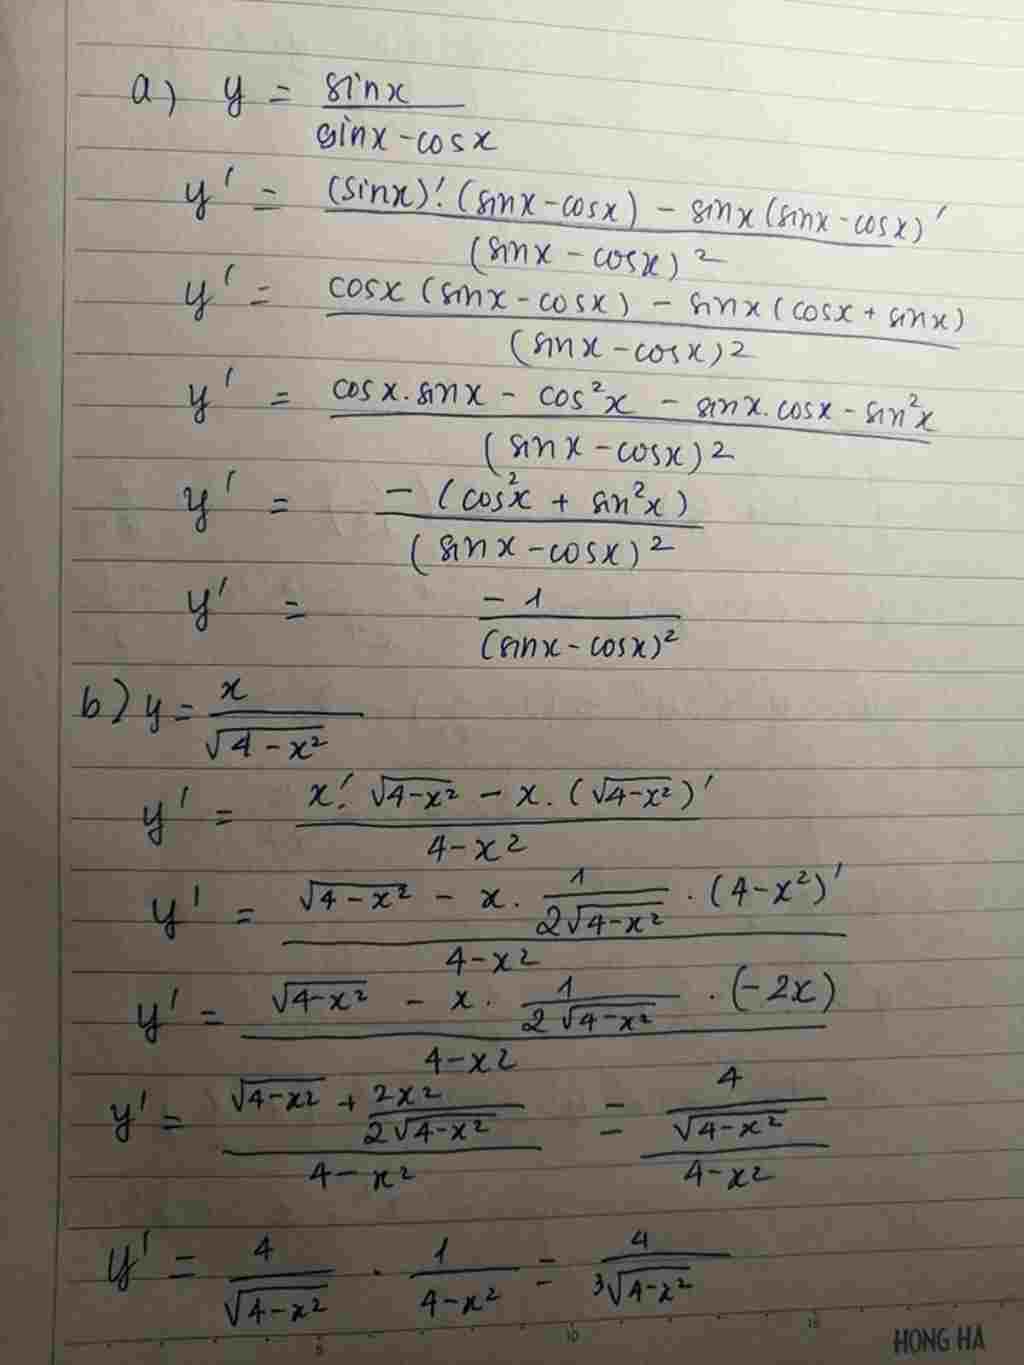 a) y = sinx / (sinx - cosx)
y' = ((sinx)'.(sinx - cosx) - sinx(sinx - cosx)') / (sinx - cosx)²
y' = (cosx(sinx - cosx) - sinx(cosx + sinx)) / (sinx - cosx)²
y' = (cosx.sinx - cos²x - sinx.cosx - sin²x) / (sinx - cosx)²
y' = -(cos²x + sin²x) / (sinx - cosx)²
y' = -1 / (sinx - cosx)²
b) y = x / √(4-x²)
y' = (x'.√(4-x²) - x.(√(4-x²))') / (4-x²)
y' = (√(4-x²) - x. 1/(2√(4-x²)) .(4-x²)') / (4-x²)
y' = (√(4-x²) - x. 1/(2√(4-x²)) .(-2x)) / (4-x²)
y' = (√(4-x²) + 2x²/(2√(4-x²))) / (4-x²) = (4/√(4-x²)) / (4-x²)
y' = 4/√(4-x²) . 1/(4-x²) = 4/³√(4-x²)
5 10 15
HONG HA